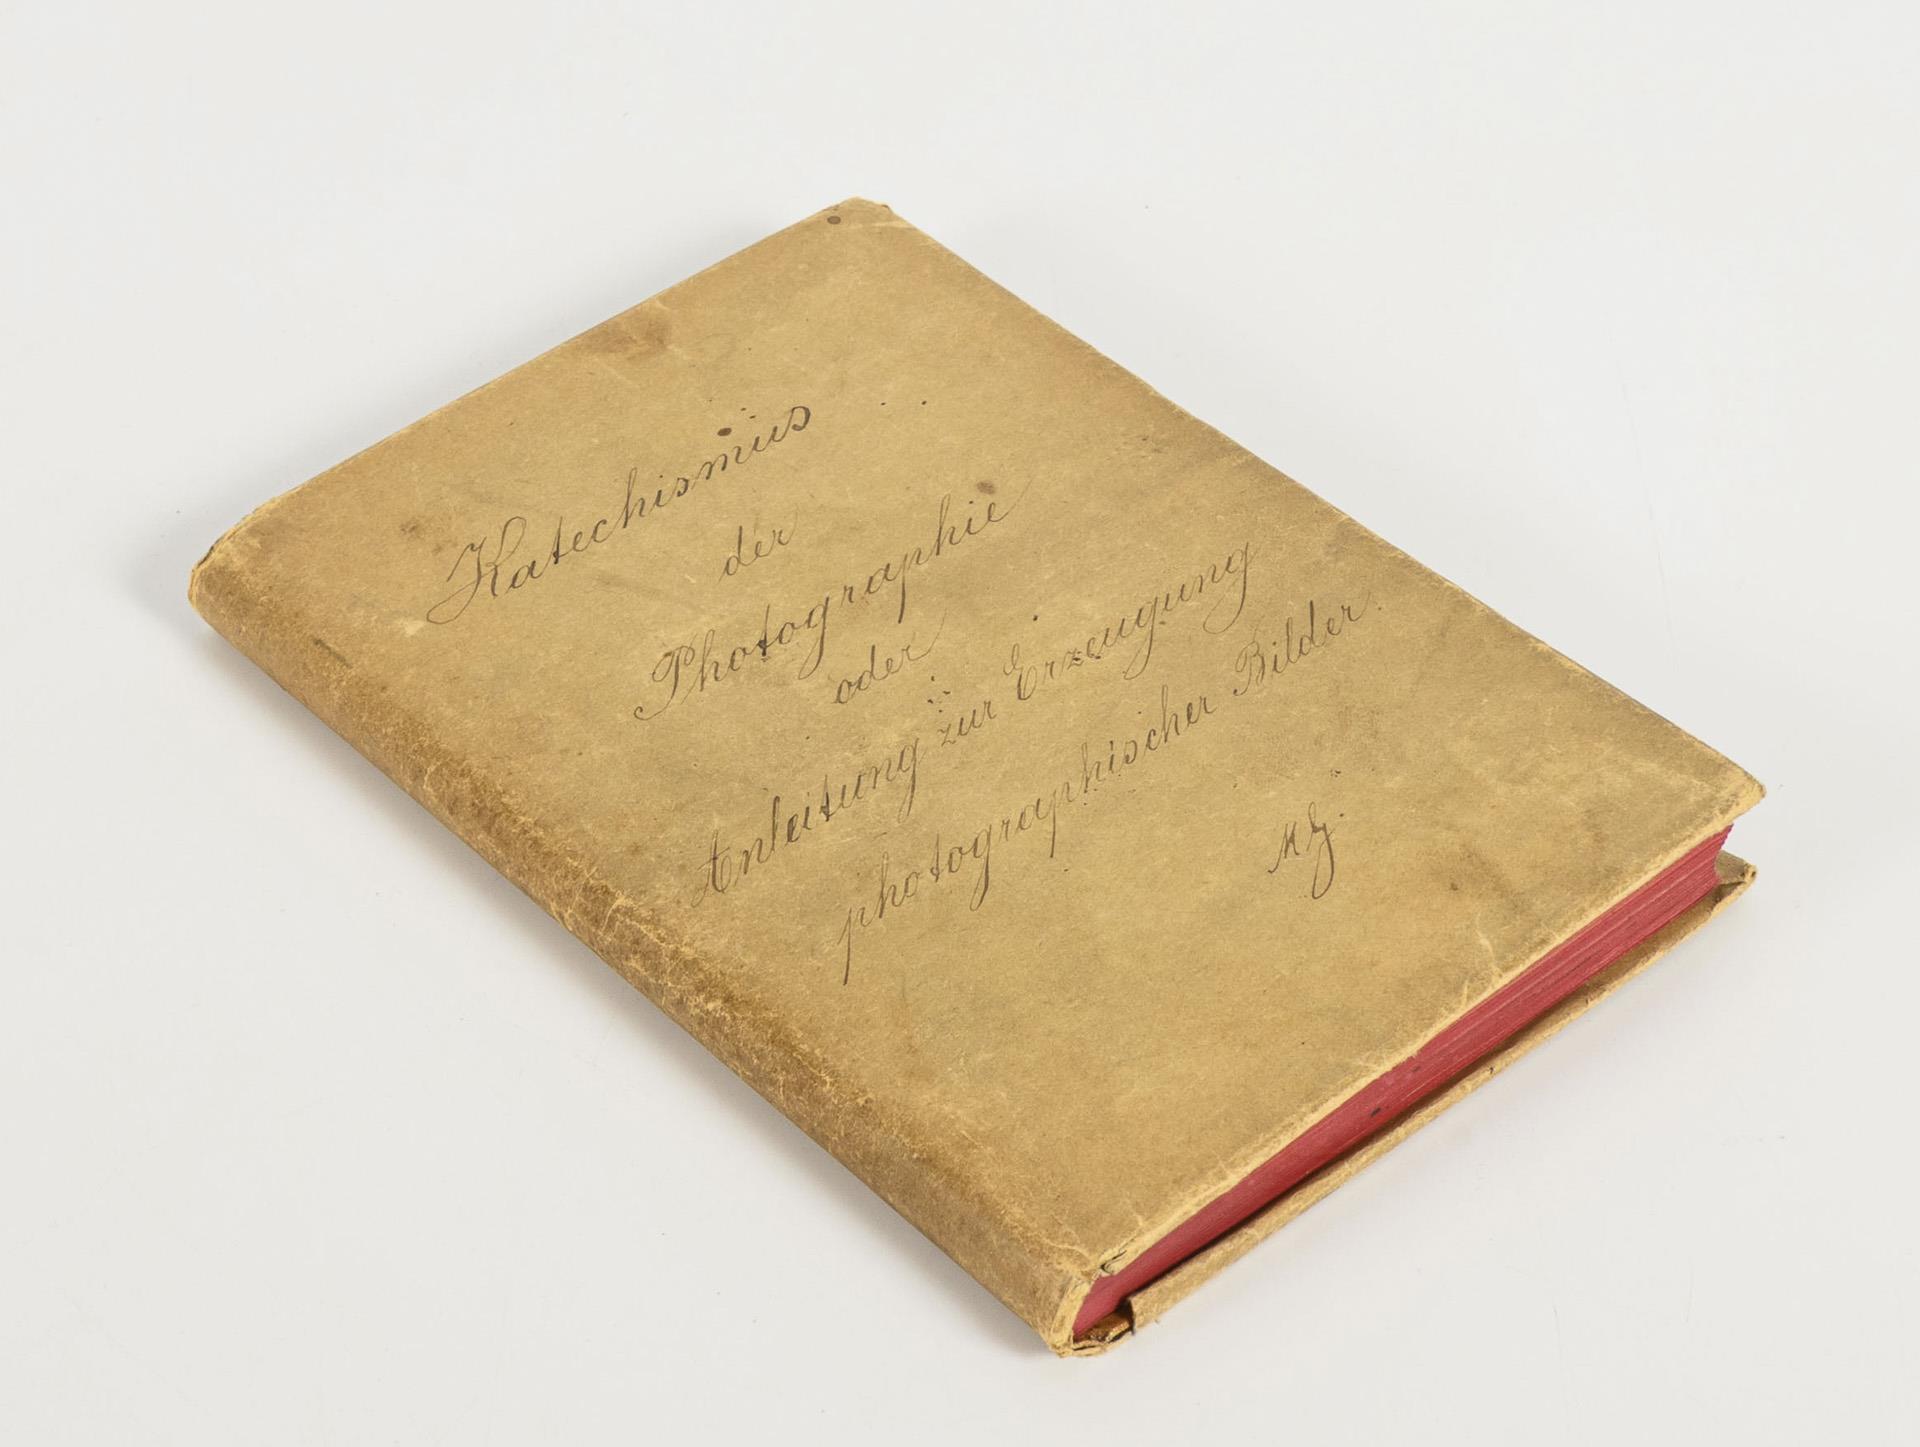 Katechismus
der
Photographie
oder
Anleitung zur Erzeugung
photographischer Bilder.